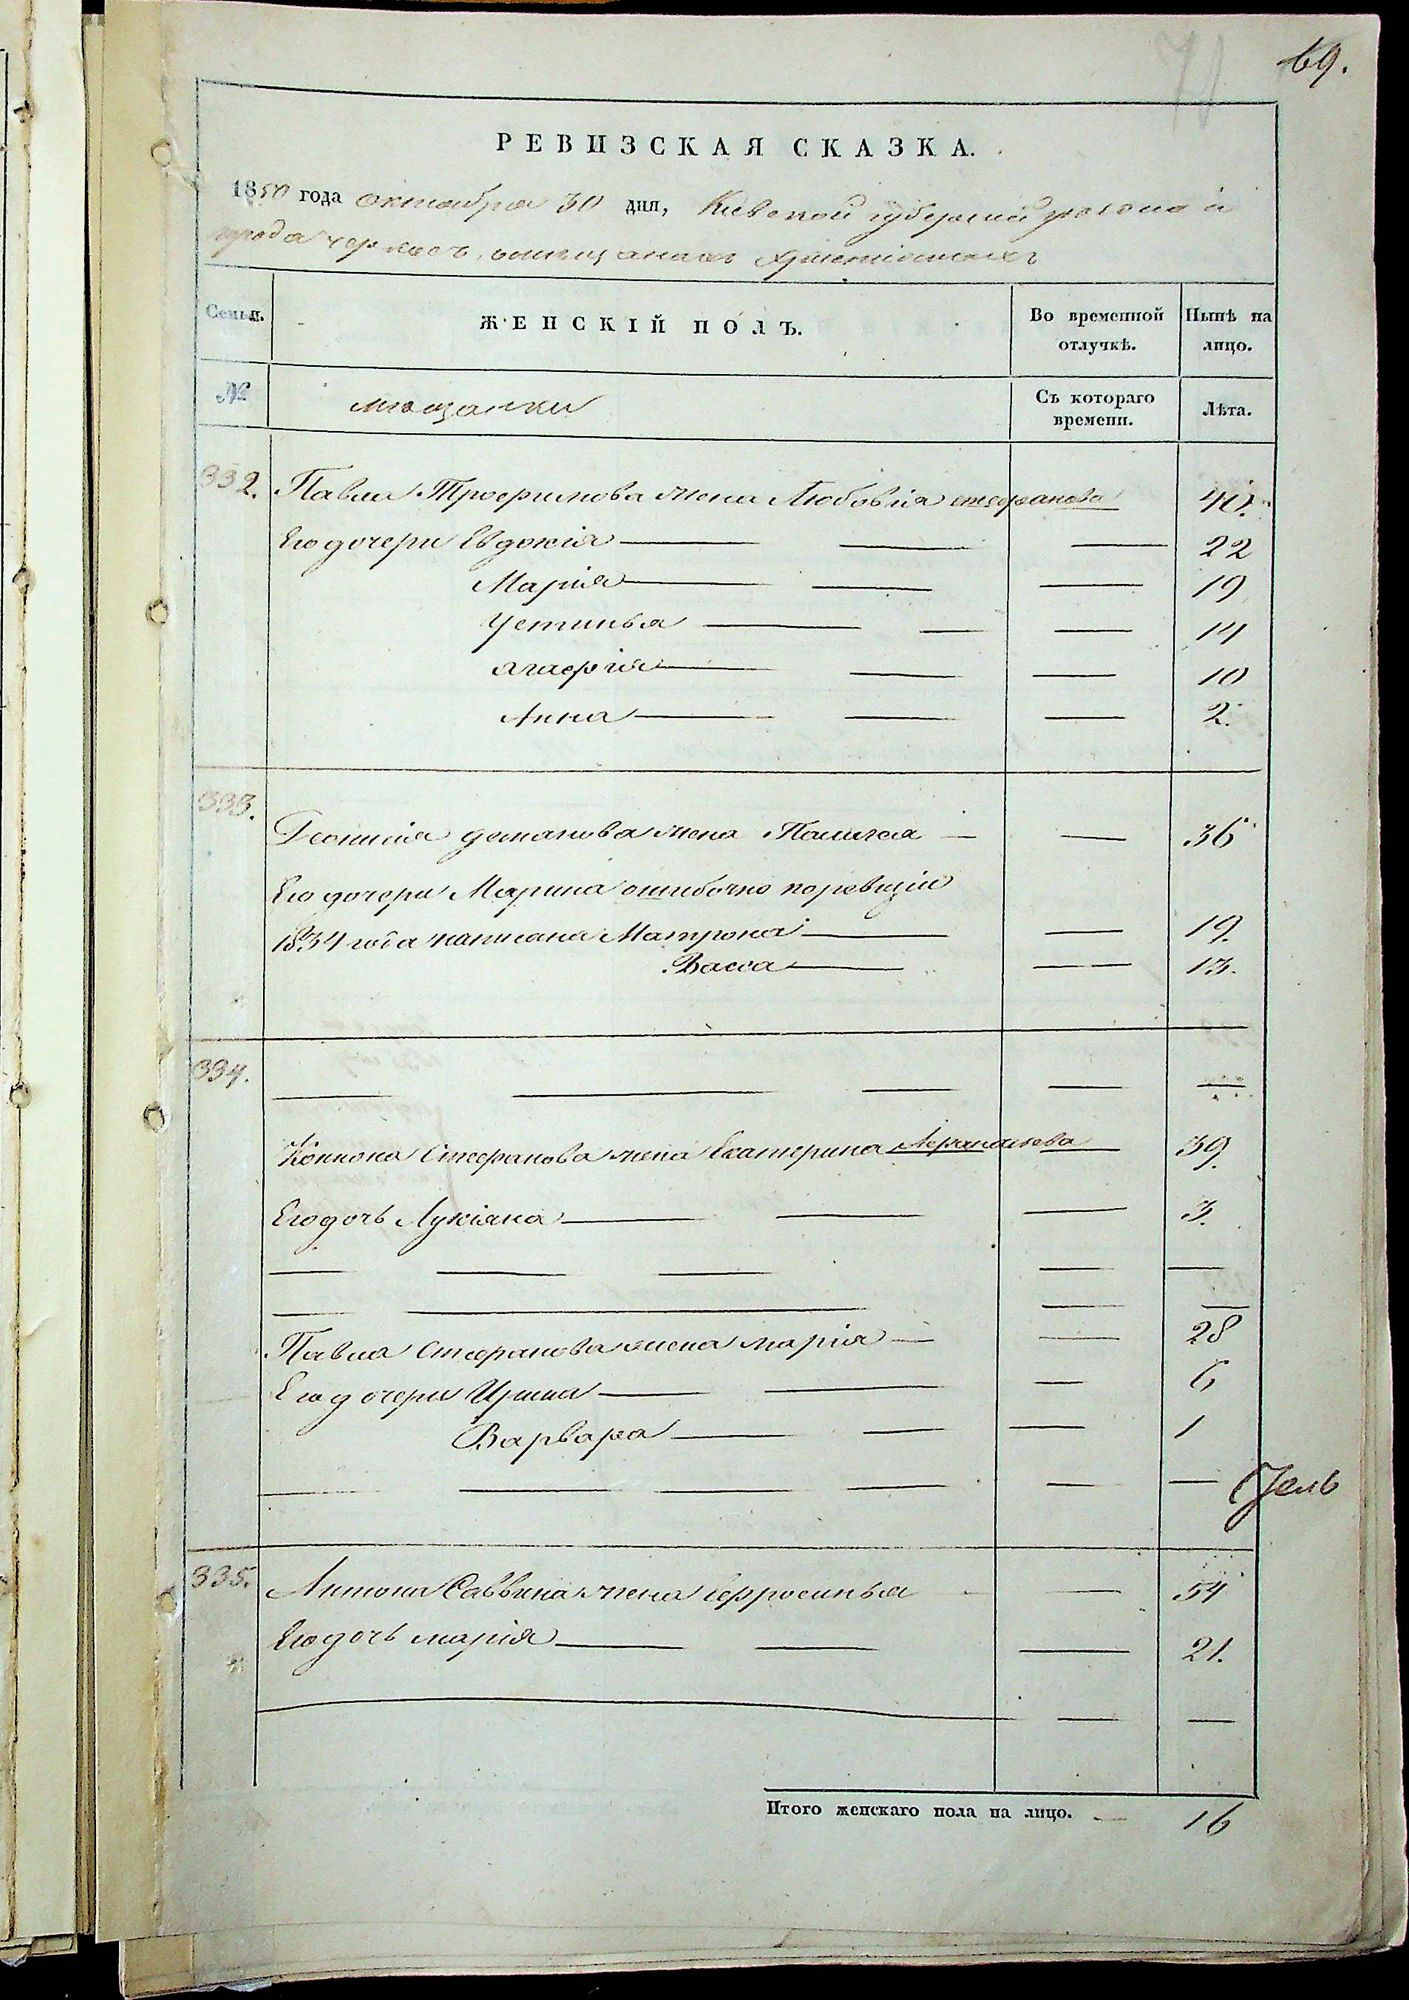 69.
РЕВИЗСКАЯ СКАЗКА.
1850 года октября 30 дня, Киевской губернии
города черкасъ, о мещанахъ Христианахъ
Семьи. ЖЕНСКІЙ ПОЛЪ. Во временной отлучкѣ. Нынѣ на лицо.
№ мещанки Съ котораго времени. Лѣта.
332. Павла Трофимова жена Любовія стефанова 40.
Его дочери Евдокія 22
Марія 19
Устинья 14
Агафія 10
Анна 2.
333. Леонтія жена Палагея 36
Его дочери Марина ошибочно по ревизіи
1834 года написана Матрона 19.
Васса 13.
334.
Конона Стефанова жена Екатерина Афанасьева 39.
Его дочь Лукіяна 3.
Павла Стефанова жена марія 28
Его дочери Ирина 6
Варвара 1
335. Антона Саввина жена Ефросинья 54
Его дочь марія 21.
Итого женскаго пола на лицо. 16